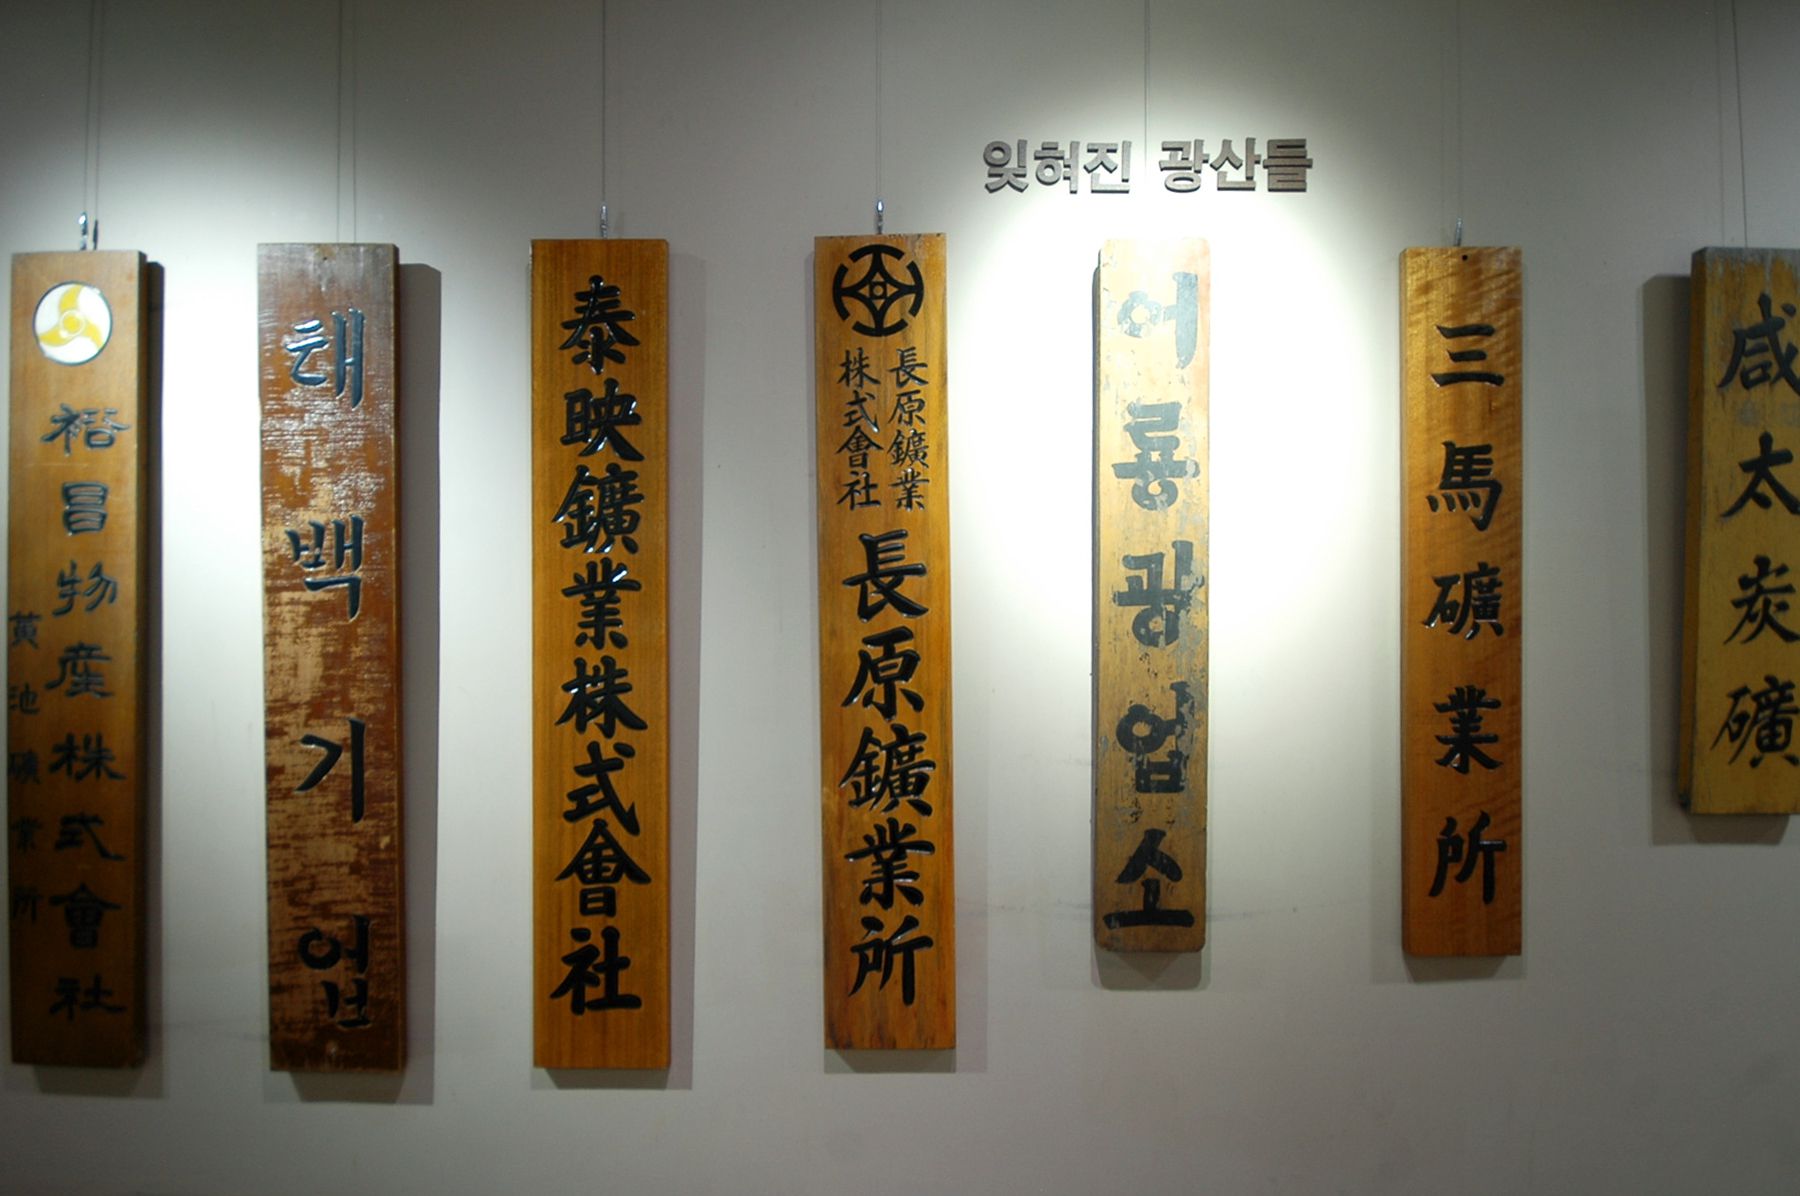 잊혀진 광산들
裕昌物産株式會社
黃池礦業所
태백기업
泰映鑛業株式會社
長原鑛業
株式會社
長原鑛業所
어룡광업소
三馬礦業所
咸太炭礦